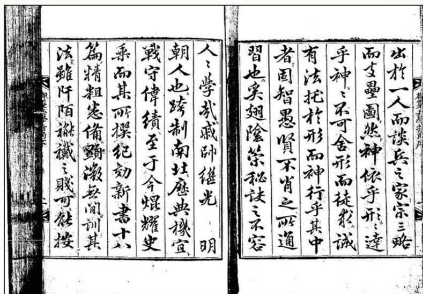 出於一人而談兵之家宗三略
而支壘圖然神依乎形〻達
乎神〻不可舍形而徒我誠
有法托於形而神行乎其中
者固智愚賢不肖之所通
習也奚翅陰策秘訣之不容
人〻學哉戚帥繼光 明
朝人也跨制南北歷典機宜
戰守偉績至于今焜耀史
乘而其所撰紀効新書十八
篇精粗悉備顯微無間訓其
法雖阡陌之賤可能按